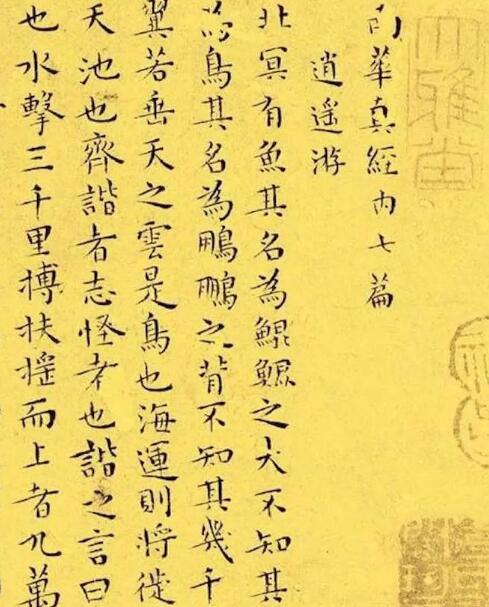 南華真經内七篇
逍遥游
北冥有魚其名為鯤鯤之大不知其
為鳥其名為鵬鵬之背不知其幾千
翼若垂天之雲是鳥也海運則將徙
天池也齊諧者志怪者也諧之言曰
也水擊三千里摶扶摇而上者九萬
大雅堂